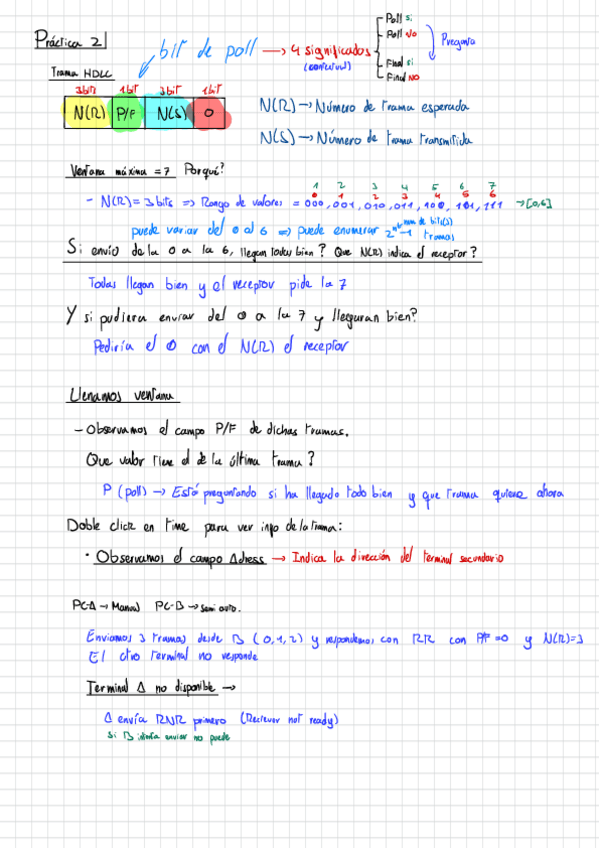 Práctica 2
bit de poll → 4 significados
(contextual)
Poll si
Poll No
Final si
Final NO
Pregunta
Trama HDLC
3bits 1bit 3bit 1bit
N(R) P/F N(S) 0
N(R) → Número de trama esperada
N(S) → Número de trama transmitida
Ventana máxima = 7 Porqué?
1 2 3 4 5 6 7
0 1 2 3 4 5 6
- N(R) = 3 bits => Rango de valores = 000, 001, 010, 011, 100, 101, 111 → [0,6]
puede variar del 0 al 6 => puede enumerar 2^num de bits(s) -1 tramas
Si envío de la 0 a la 6, llegan todas bien? Que N(R) indica el receptor?
Todas llegan bien y el receptor pide la 7
Y si pudiera enviar del 0 a la 7 y llegaran bien?
Pediría el 0 con el N(R) el receptor
Llenamos ventana
- Observamos el campo P/F de dichas tramas.
Que valor tiene el de la última trama?
P (poll) → Está preguntando si ha llegado todo bien y que trama quiere ahora
Doble click en time para ver info de la trama:
· Observamos el campo Adress → Indica la dirección del terminal secundario
PC-A → Manual PC-B → Semi auto.
Enviamos 3 tramas desde B (0,1,2) y respondemos con RR con P/F=0 y N(R)=3
El otro terminal no responde
Terminal A no disponible →
A envía RNR primero (Reciever not ready)
Si B intenta enviar no puede